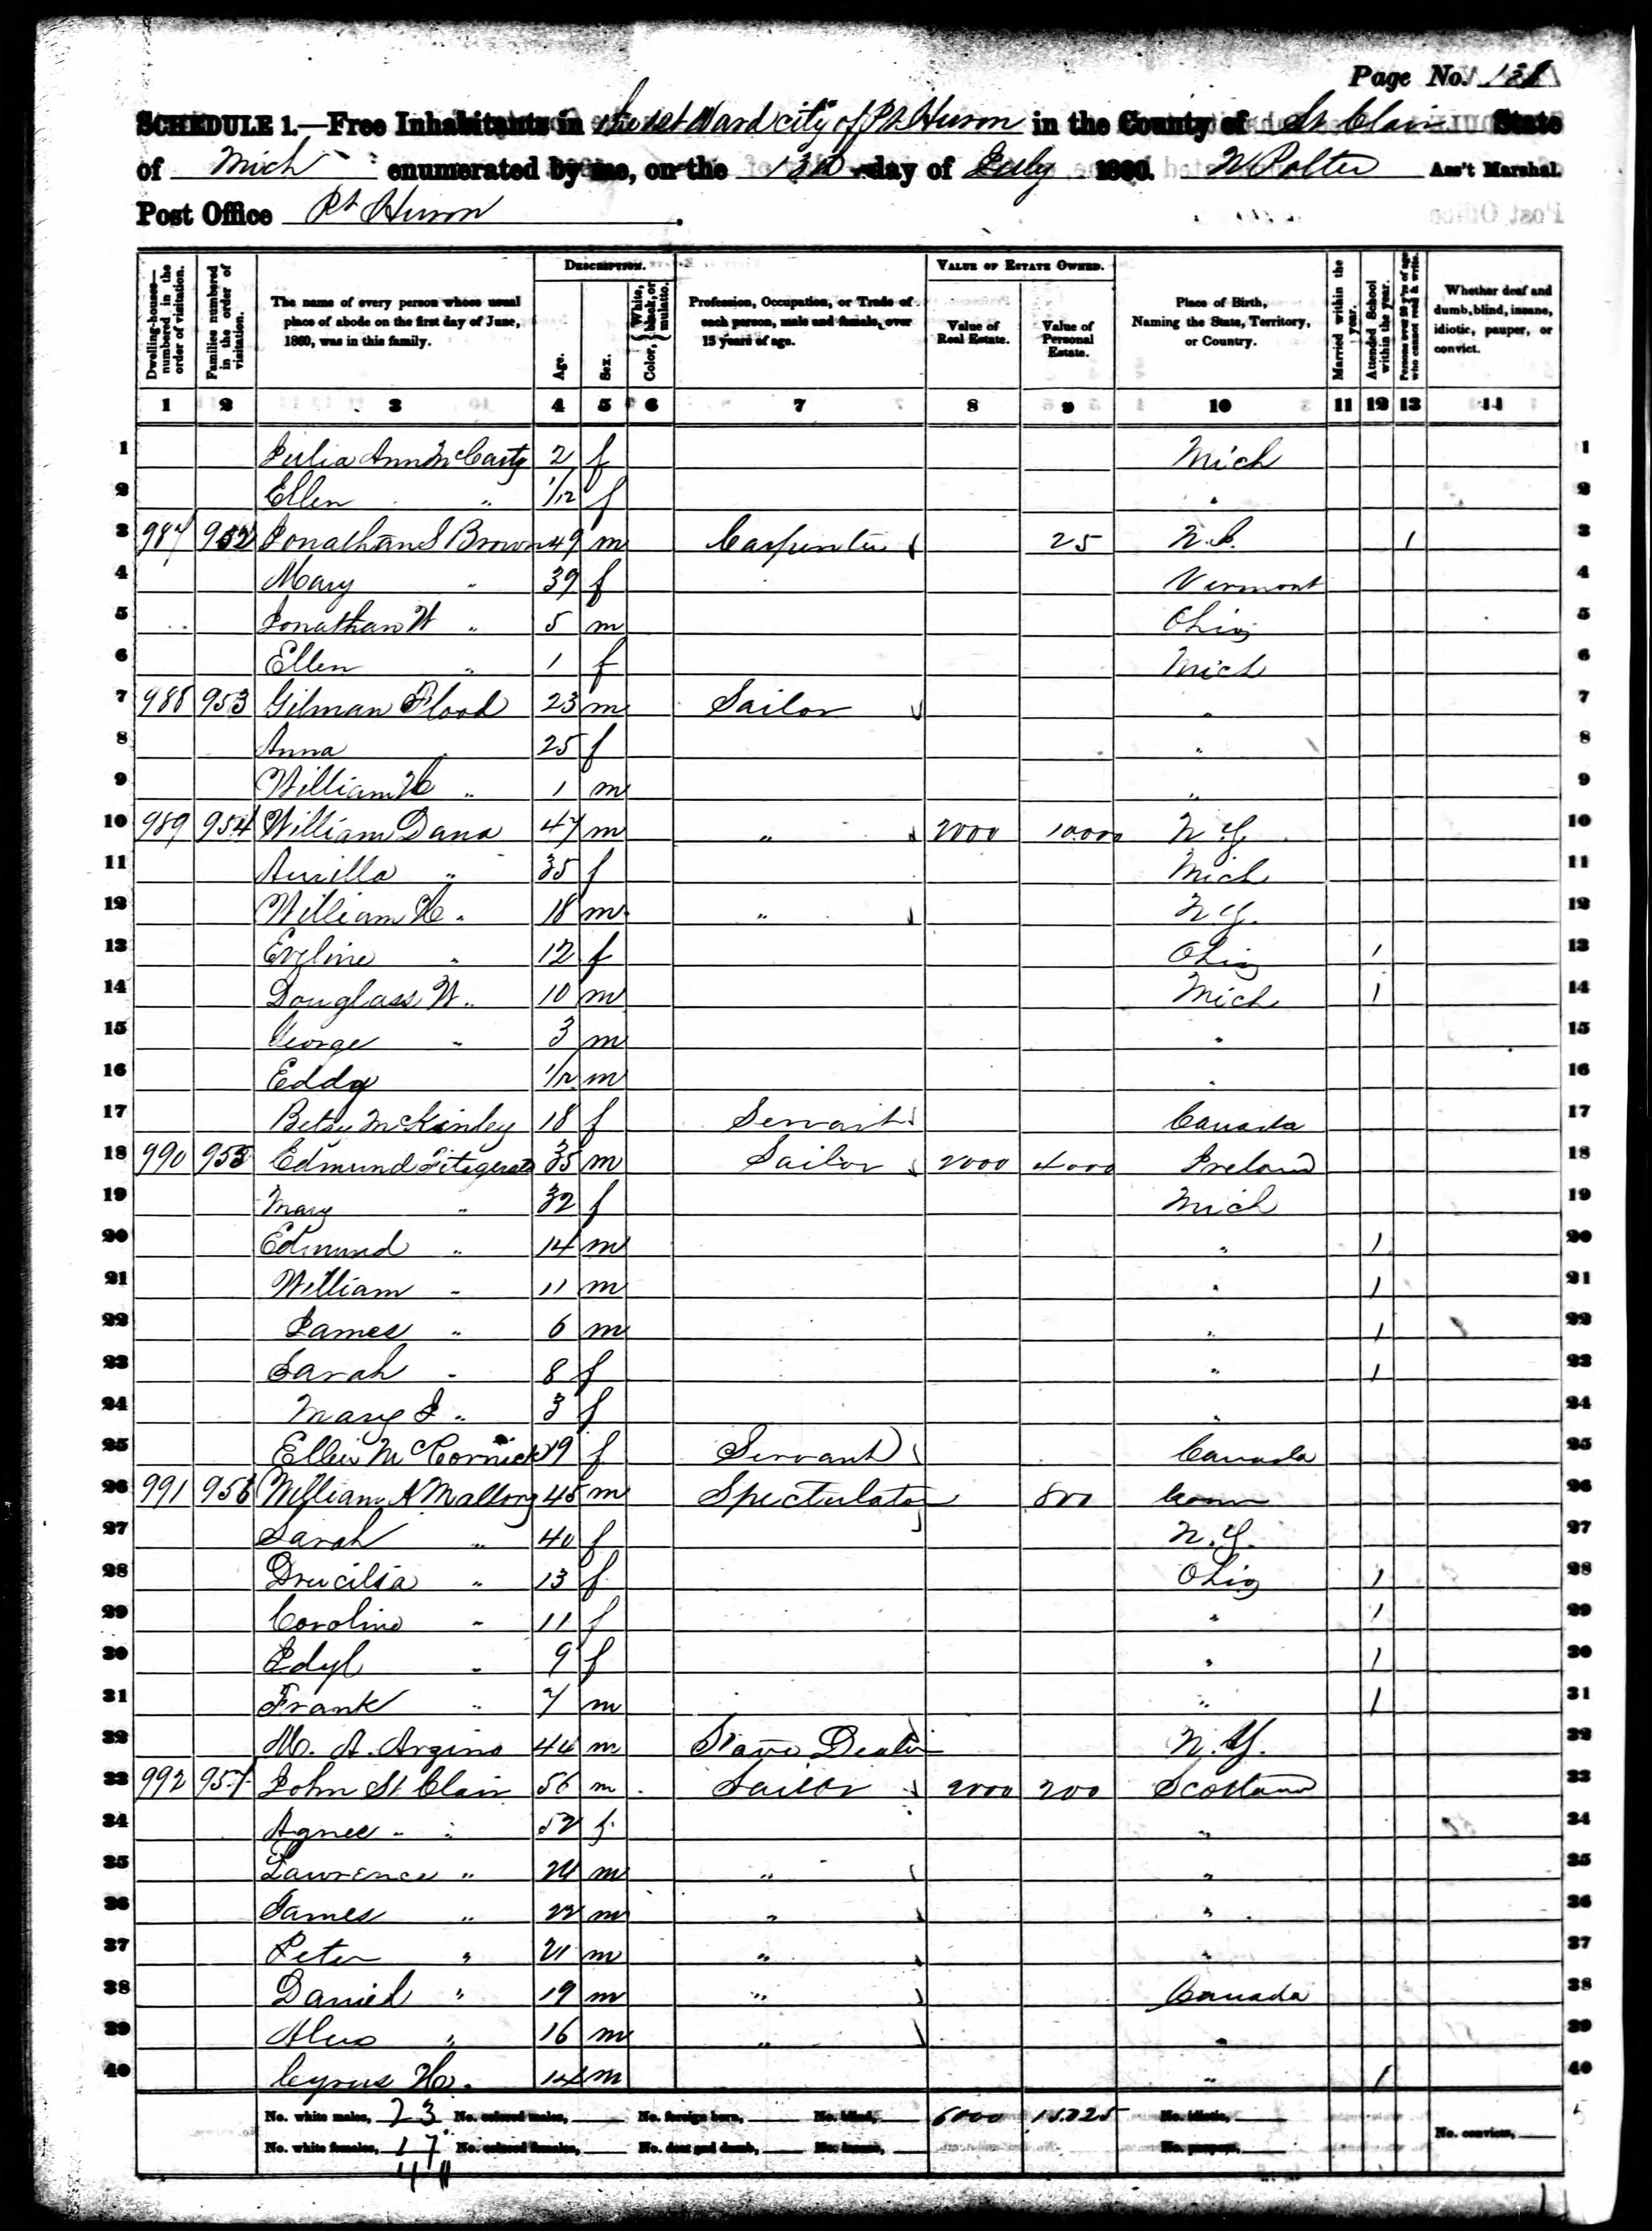 Page No. 138
SCHEDULE 1.—Free Inhabitants in the 1st Ward city of Pt Huron in the County of St Clair State
of Mich enumerated by me, on the 13th day of July 1860. Ass't Marshal.
Post Office Pt Huron.
Dwelling-houses—numbered in the order of visitation. Families numbered in the order of visitation. The name of every person whose usual place of abode on the first day of June, 1860, was in this family. DESCRIPTION. Age. Sex. Color, {White, black, or mulatto. Profession, Occupation, or Trade of each person, male and female, over 15 years of age. VALUE OF ESTATE OWNED. Value of Real Estate. Value of Personal Estate. Place of Birth, Naming the State, Territory, or Country. Married within the year. Attended School within the year. Persons over 20 y'rs of age who cannot read & write. Whether deaf and dumb, blind, insane, idiotic, pauper, or convict.
1 2 3 4 5 6 7 8 9 10 11 12 13 14
1 Julia Ann McCarty 2 f Mich 1
2 Ellen " 1/12 f " 2
3 987 952 Jonathan S Brown 49 m Carpenter 25 N.J. 1 3
4 Mary " 39 f Vermont 4
5 Jonathan W " 5 m Ohio 5
6 Ellen " 1 f Mich 6
7 988 953 Gilman Flood 23 m Sailor " 7
8 Anna " 25 f " 8
9 William H " 1 m " 9
10 989 954 William Dana 47 m " 2000 10000 N.Y. 10
11 Aurilla " 35 f Mich 11
12 William H " 18 m " N.Y. 12
13 Eveline " 12 f Ohio 1 13
14 Douglass W " 10 m Mich 1 14
15 George " 3 m " 15
16 Eddy 1/12 m " 16
17 Betsy McKinley 18 f Servant Canada 17
18 990 955 Edmund Fitzgerald 35 m Sailor 2000 4000 Ireland 18
19 Mary " 32 f Mich 19
20 Edmund " 14 m " 1 20
21 William " 11 m " 1 21
22 James " 6 m " 1 22
23 Sarah " 8 f " 1 23
24 Mary J " 3 f " 24
25 Ellen McCornick 19 f Servant Canada 25
26 991 956 William A Mallory 45 m Spectulator 800 Conn 26
27 Sarah " 40 f N.Y. 27
28 Drucilia " 13 f Ohio 1 28
29 Caroline " 11 f " 1 29
30 Idyl " 9 f " 1 30
31 Frank " 7 m " 1 31
32 M. A. Argino 44 m Stave Dealer N.Y. 32
33 992 957 John St Clair 56 m Sailor 2000 200 Scotland 33
34 Agnes " " 52 f " 34
35 Lawrence " 24 m " " 35
36 James " 22 m " " 36
37 Peter " 21 m " " 37
38 Daniel " 19 m " Canada 38
39 Alex " 16 m " " 39
40 Cyrus H " 14 m " 1 40
No. white males, 23 No. colored males, No. foreign born, No. blind, 6000 15025 No. idiotic,
No. white females, 17 No. colored females, No. deaf and dumb, No. insane, No. paupers, No. convicts,
40